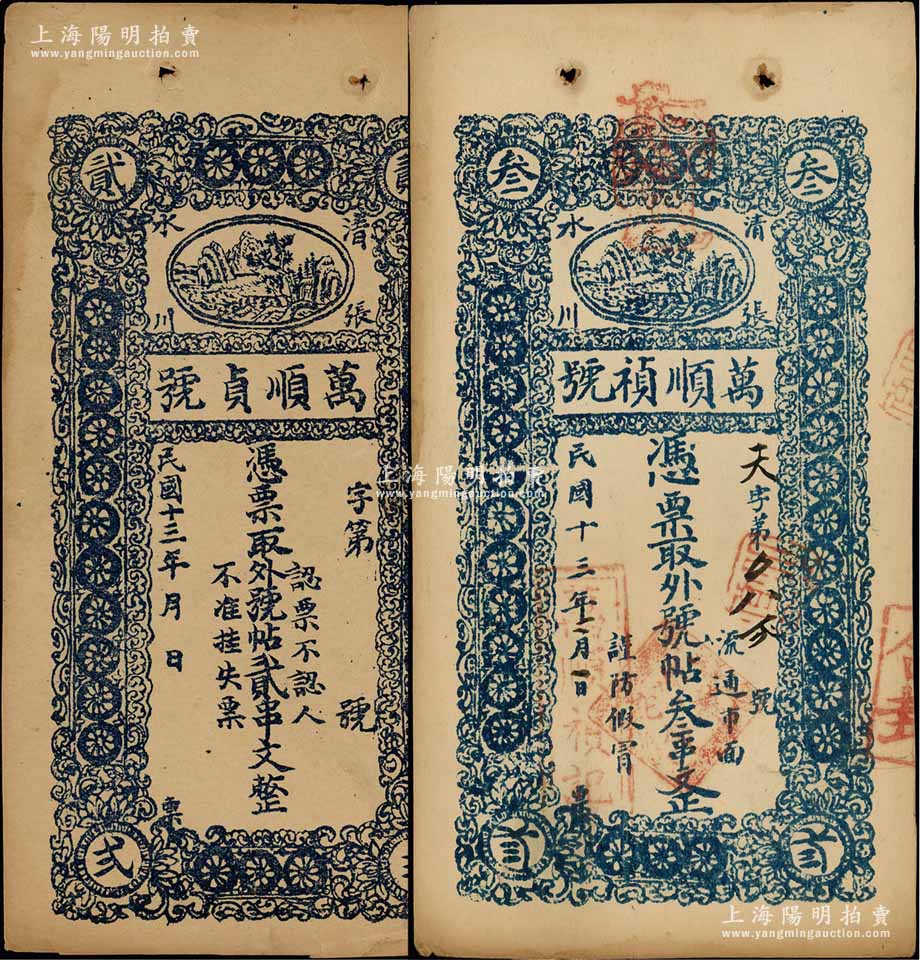 上海陽明拍賣
www.yangmingauction.com
貳
清水
張川
萬順貞號
字第 號
憑票取外號帖貳串文整
認票不認人
不准挂失票
民國十三年 月 日
票
弍
叁
叁
清水
張川
萬順禎號
天字第 號
流通市面
憑票取外號帖叁串文正
謹防假冒
民國十三年 月 日
票
上海陽明拍賣
www.yangmingauction.com
上海陽明拍賣
www.yangmingauction.com